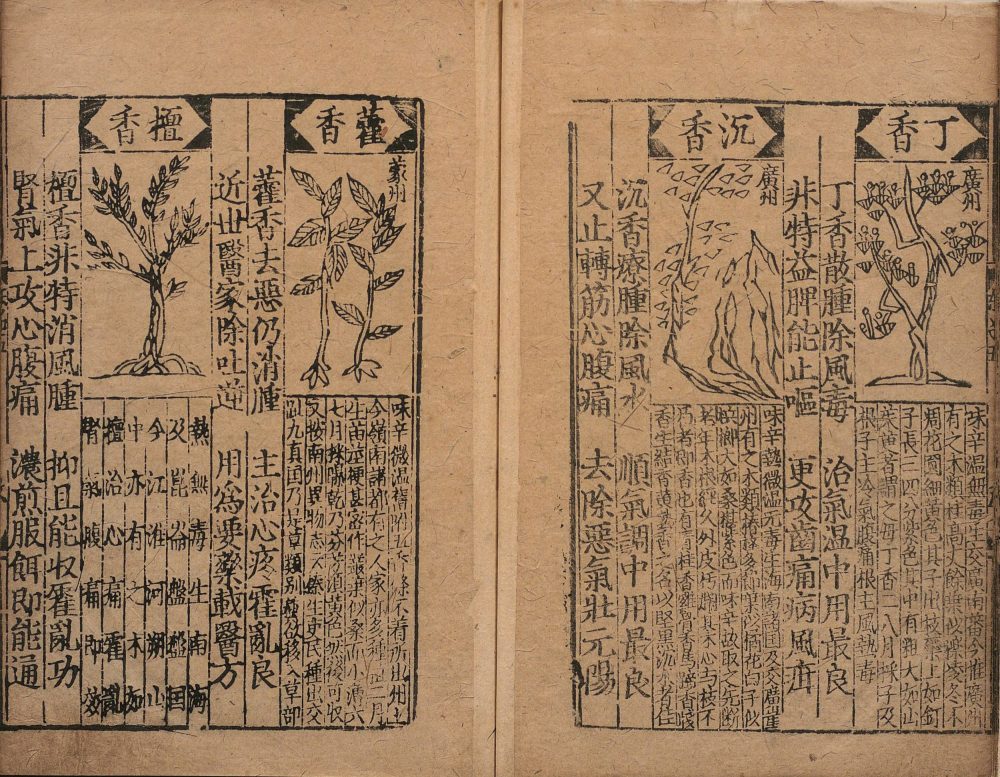 丁香
廣州
味辛温無毒生交廣南番今惟廣州
有之木類桂高丈餘葉似櫟凌冬不
凋花圓細黃色其子出枝蘂上如釘
子長三四分紫色其中有粗大如山
茱萸者謂之母丁香二八月採子及
根子主冷氣腹痛根主風熱毒
丁香散腫除風毒 治氣温中用最良
非特益脾能止嘔 更攻齒痛病風疳
沉香
廣州
味辛熱微温无毒生海南諸國及交廣崖
州有之木類椿櫸多節葉似橘花白子似
檳榔大如桑椹紫色而味辛故取之先斷
老年木根經久外皮朽爛其木心与枝不
朽者即香也有青桂香雞骨香馬蹄香棧
香生結香黃熟香之名以堅黑沉水者佳
沉香療腫除風水 順氣調中用最良
又止轉筋心腹痛 去除惡氣壯元陽
藿香
蒙州
味辛微温舊附五香條不着所出州土
今嶺南諸郡有之人家亦多種二月
生苗莖梗甚密作叢葉似桑而小薄六
七月採暴乾乃芬香須黃色然後可收
又按南州異物志云 生 民種出交
趾九真国乃是草類別種故移入草部
藿香去惡仍消腫 主治心疼霍亂良
近世醫家除吐逆 用爲要藥載醫方
檀香
熱無毒生南海
及崑崙盤盤国
今江淮河朔山
中亦有之木如
檀治心痛霍亂
腎氣腹痛即效
檀香非特消風腫 抑且能收霍亂功
腎氣上攻心腹痛 濃煎服餌即能通